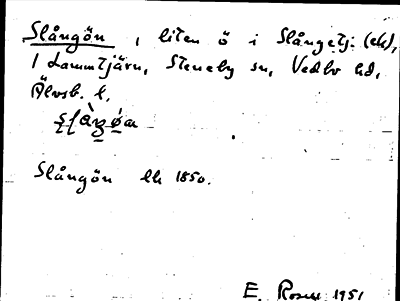 Slångön, liten ö i Slångetj. (ek),
i Lammtjärn, Steneby sn, Vedbo hd,
Älvsb. l.
Slångön lk 1850.
E. Rosell 1951